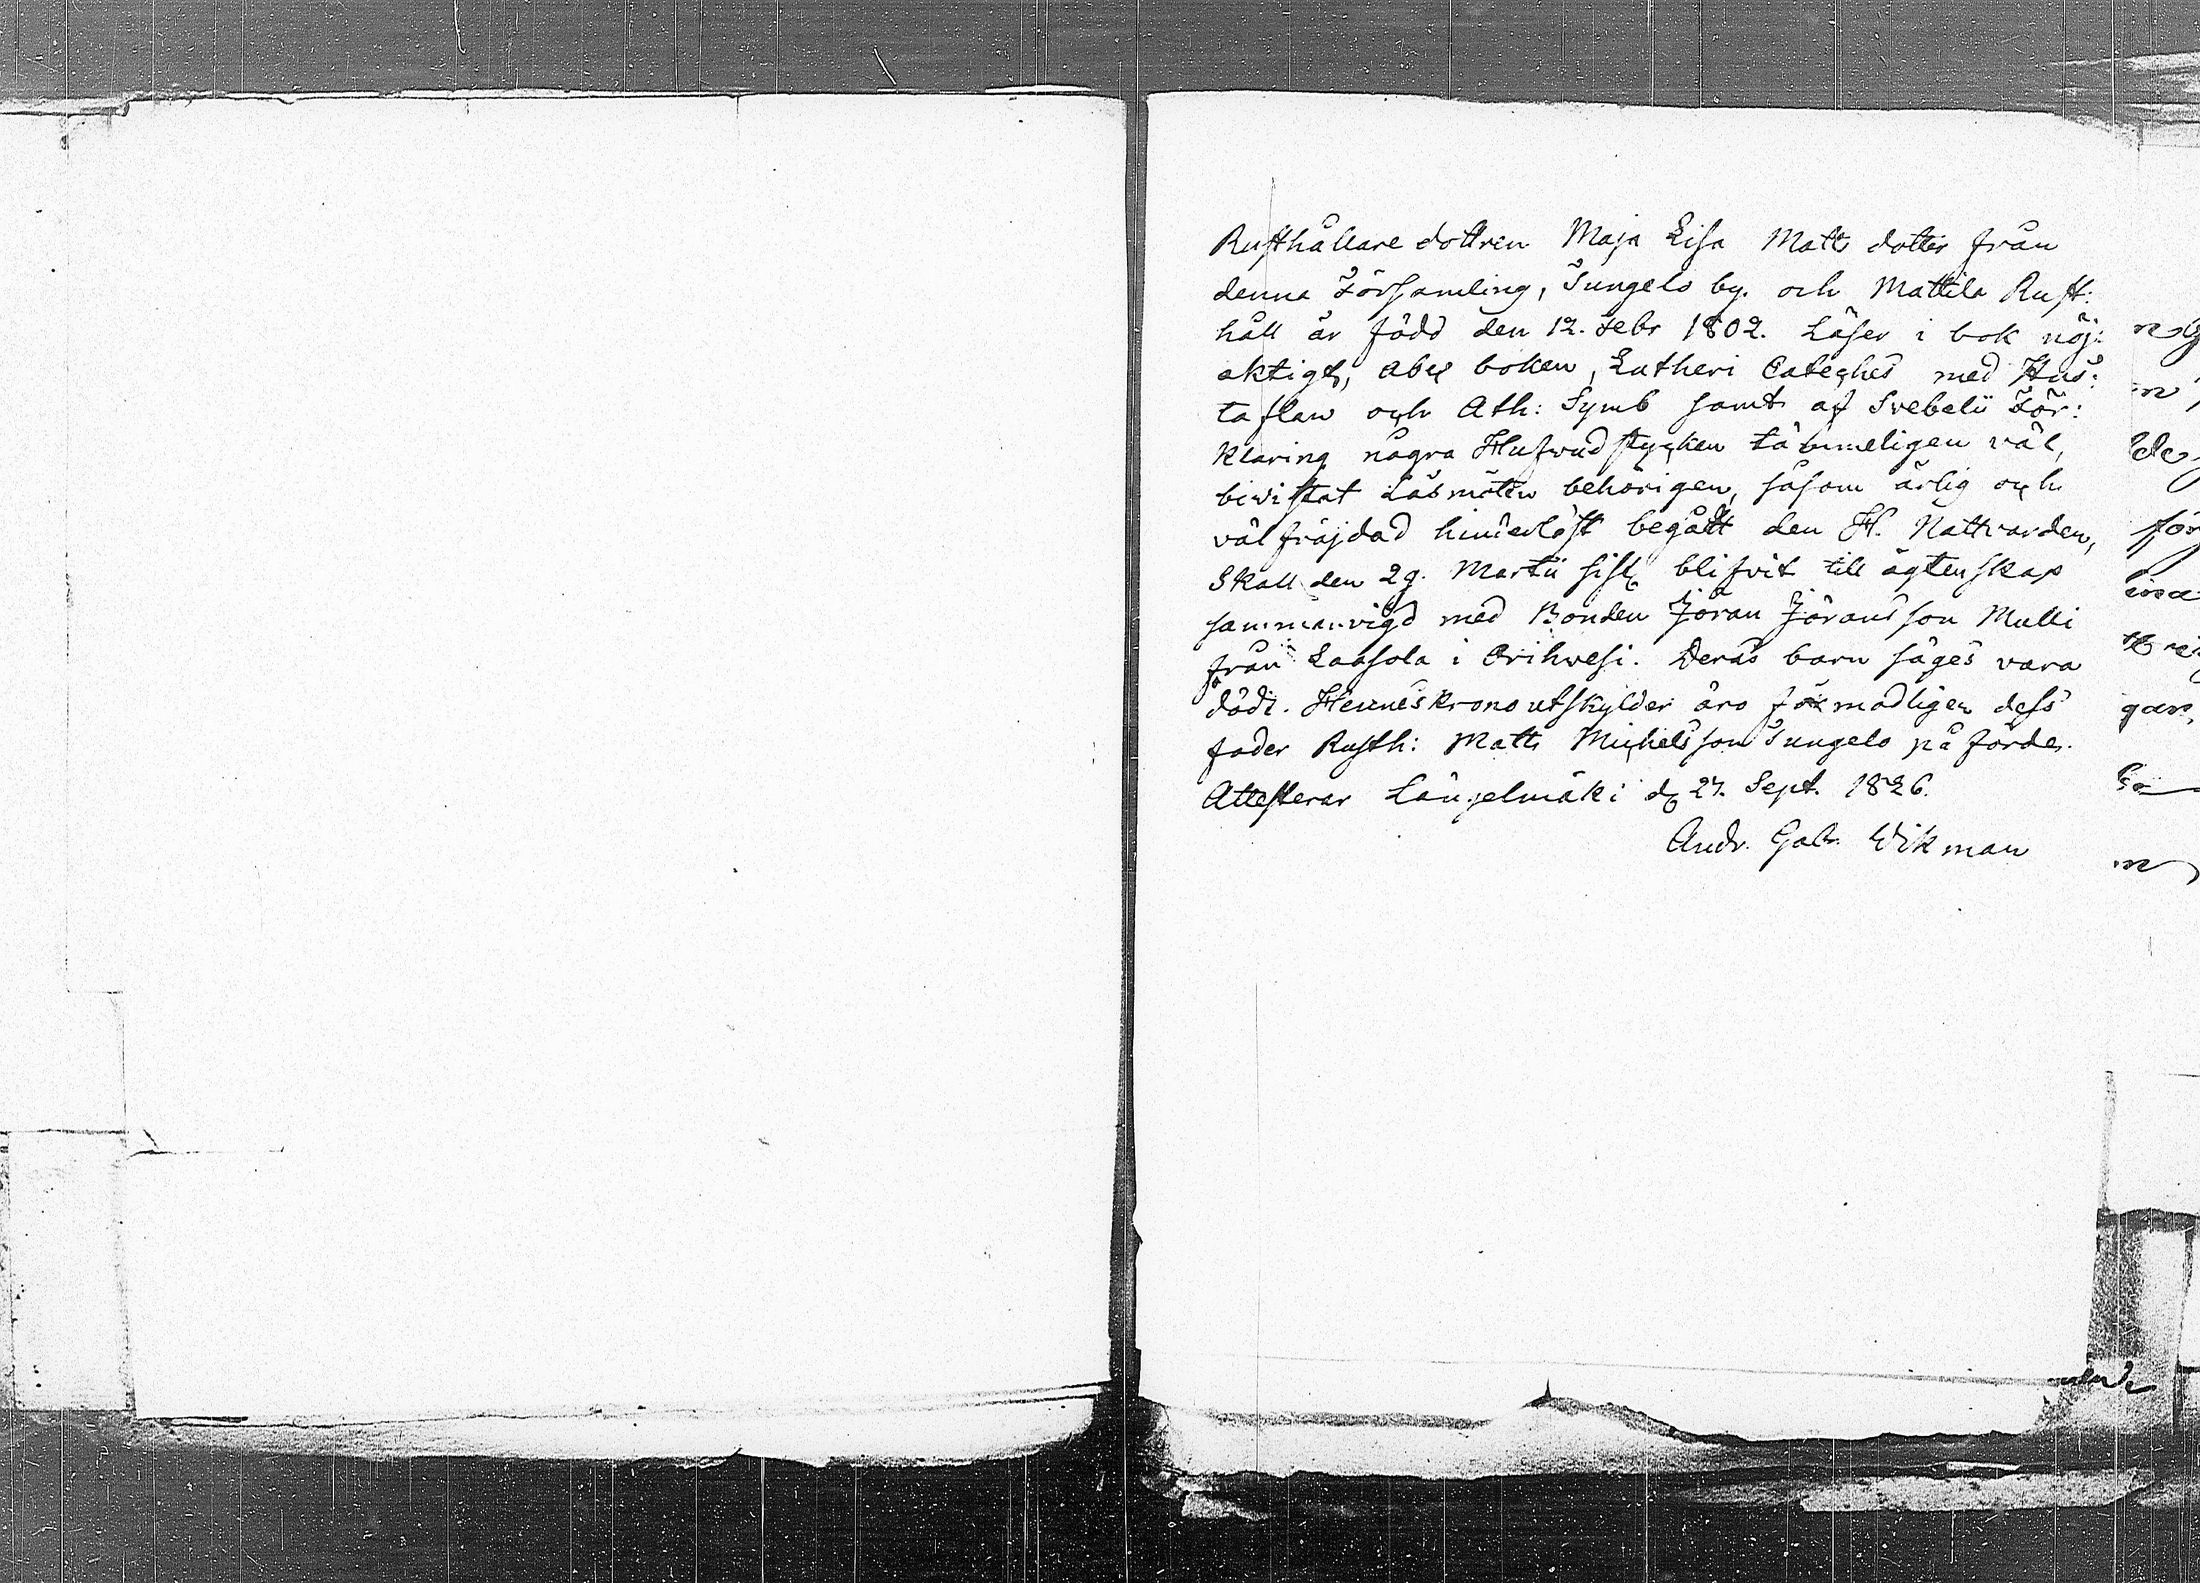 Rusthållare dottren Maja Lisa Matts dotter från
denna Församling, Sungelo by. och Mattila Rust:
håll är född den 12. Febr 1802. Läser i bok nöj:
aktigt, abc boken, Lutheri Cateches med Hus:
taflan och Ath: Symb samt af Svebelii För:
klaring några Hufvudstycken tämmeligen väl,
bivistat Läsmöten behörigen, såsom ärlig och
välfräjdad hinderlöst begått den H. Nattvarden,
Skall den 29. Martii sistl blifvit till ägtenskap
sammanvigd med Bonden Jöran Jöransson Mulli
från Laasola i Orihwesi. Deras barn säges vara
födt. Hennes krono utskylder äro förmodligen dess
fader Rusth: Matts Michelsson Sungelo påförde.
Attesterar Längelmäki d 27. Sept. 1826.
Andr. Gabr. Wikman